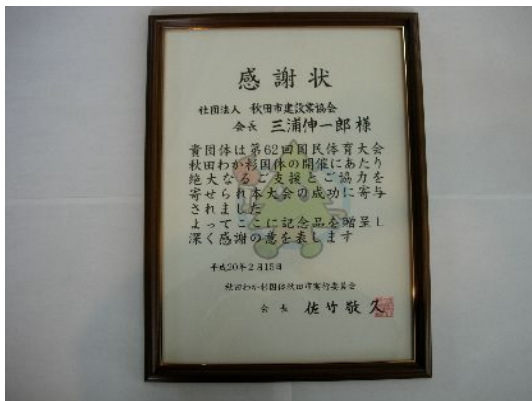 感謝状
社団法人 秋田市建設業協会
会長 三浦伸一郎様
貴団体は第62回国民体育大会
秋田わか杉国体の開催にあたり
絶大なるご支援とご協力を
寄せられ本大会の成功に寄与
されました
よってここに記念品を贈呈し
深く感謝の意を表します
平成20年2月15日
秋田わか杉国体秋田市実行委員会
会長 佐竹敬久